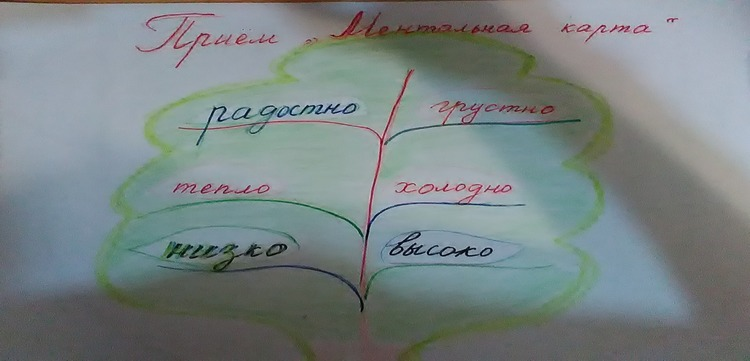 Приём „Ментальная карта"
радостно грустно
тепло холодно
низко высоко